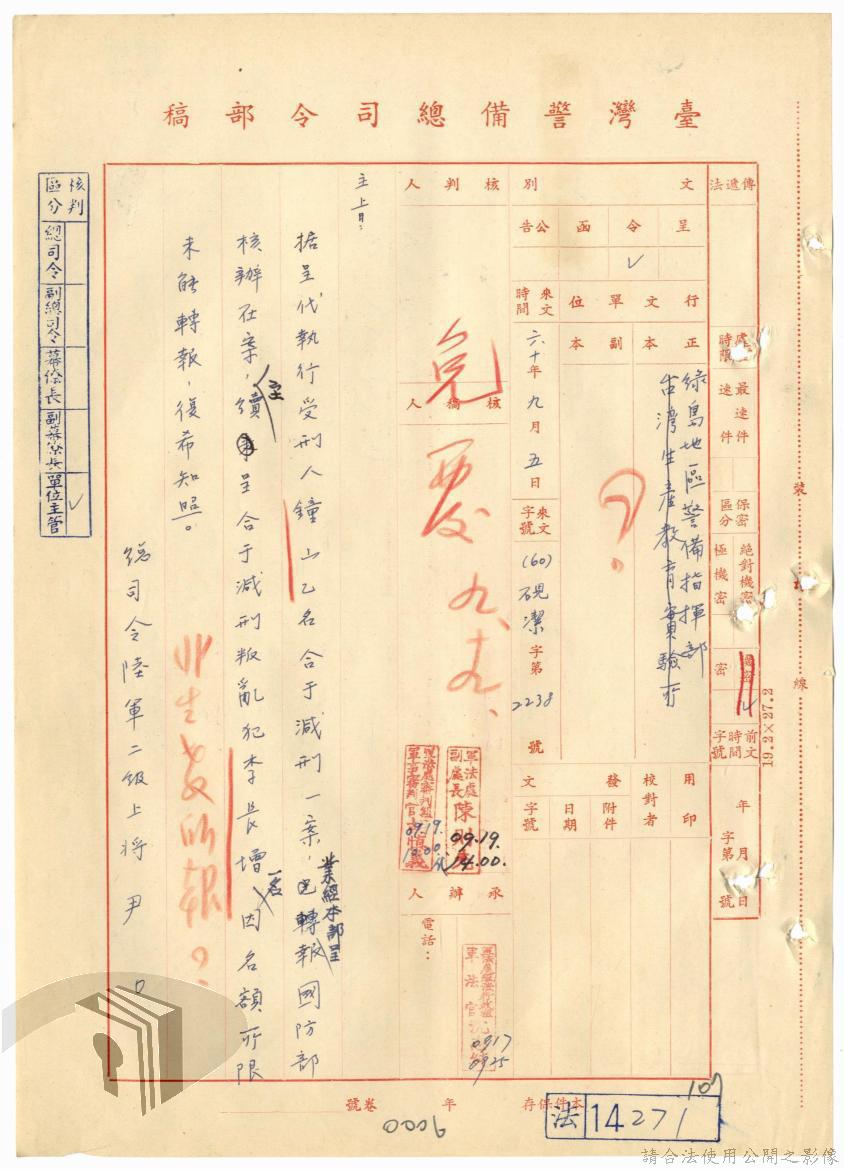 臺灣警備總司令部稿
傳遞法
處理時限
最速件
速件
保密區分
絕對機密
極機密
密
前文時間字號
年月日
字第號
文別
呈
令
✓
函
公告
行文單位
正本
副本
綠島地區警備指揮部
台灣生產教育實驗所
來文時間
六十年九月五日
來文字號
(60)硯潔字第2238號
用印
校對者
發文
附件
日期
字號
核判人
核稿人
軍法處副處長陳
09.19.
14.00.
09.19.
10.00.
承辦人
電話：
0917
0925
主旨：
据呈代執行受刑人鐘山乙名合于減刑一案，
業經本部呈
轉報國防部
核辦在案，續呈合于減刑叛亂犯李長增一名
因名額所限
未能轉報，復希知照。
總司令陸軍二級上將尹○
核判區分
總司令
副總司令
幕僚長
副幕僚長
單位主管
✓
裝訂線
19.2×27.2
本件保存年
卷號
9000
107
法 14271
請合法使用公開之影像